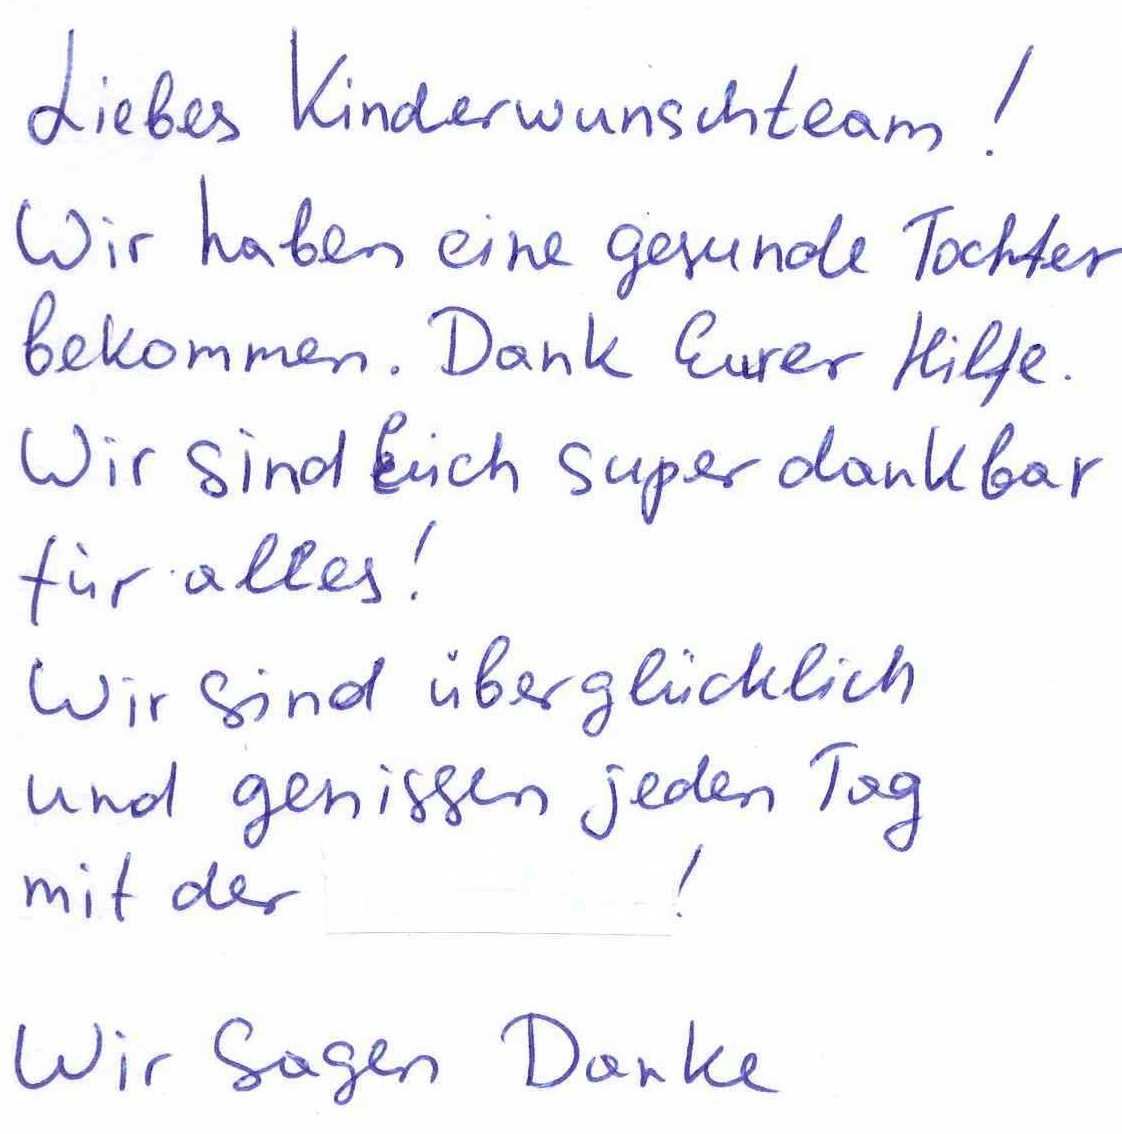 Liebes Kinderwunschteam!
Wir haben eine gesunde Tochter
bekommen. Dank Eurer Hilfe.
Wir sind Euch super dankbar
für alles!
Wir sind überglücklich
und genissen jeden Tag
mit der !
Wir sagen Danke